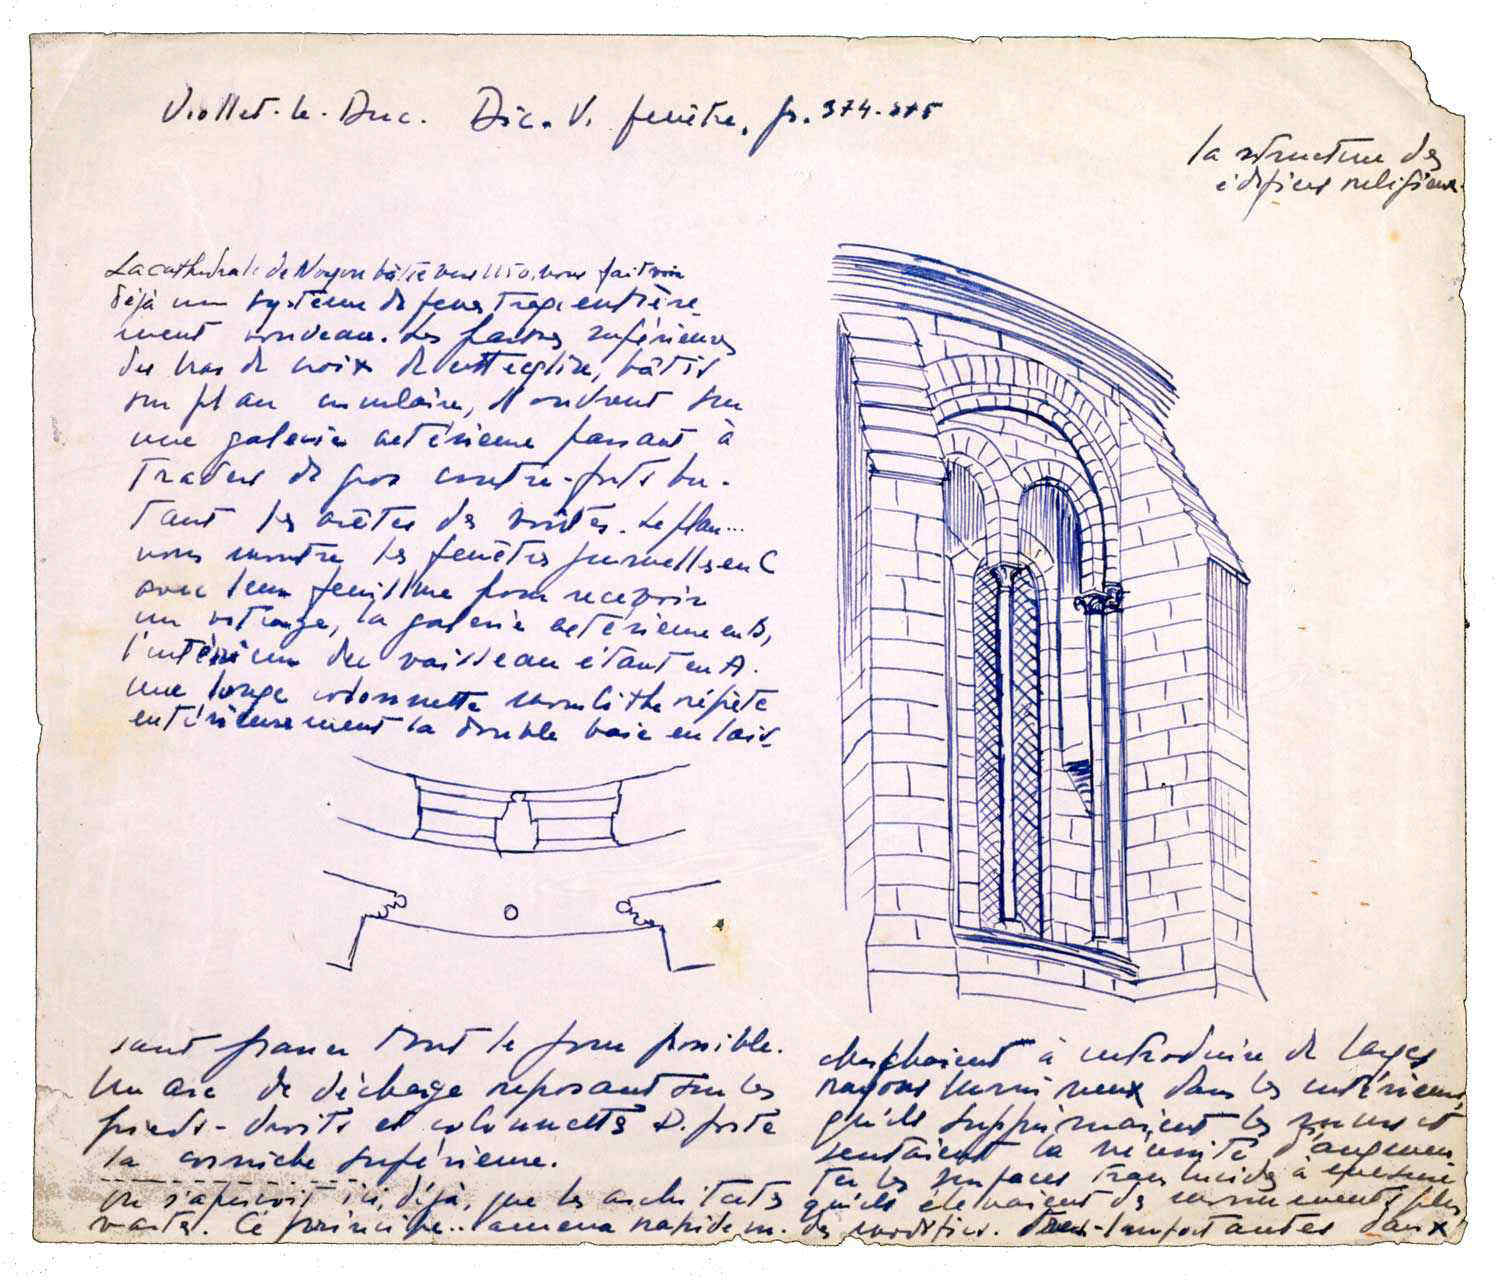 Viollet-le-Duc. Dic. V. fenêtre, p. 374-375
la structure des
édifices religieux.
La cathédrale de Noyon bâtie vers 1150, nous fait voir
déjà un système de fenestrage entière-
ment nouveau. Les fenêtres supérieures
des bras de croix de cette église, bâtis
sur plan circulaire, s'ouvrent sur
une galerie extérieure passant à
travers de gros contre-forts bu-
tant les arêtes des voûtes. Le plan...
nous montre les fenêtres jumelles en C
avec leur feuillure pour recevoir
un vitrage, la galerie extérieure en B,
l'intérieur du vaisseau étant en A.
une longue colonnette monolithe répète
extérieurement la double baie en lais-
sant passer tout le jour possible.
Un arc de décharge reposant sur les
pieds-droits et colonnettes D. porte
la corniche supérieure.
On s'aperçoit ici, déjà, que les architectes
cherchaient à introduire de larges
rayons lumineux dans les intérieurs,
qu'ils supprimaient les et
sentaient la nécessité d'augmen
ter les surfaces translucides à mesure
qu'ils élevaient des monuments plus
vastes. Ce principe.. amena rapidem. des modific. très-importantes dans